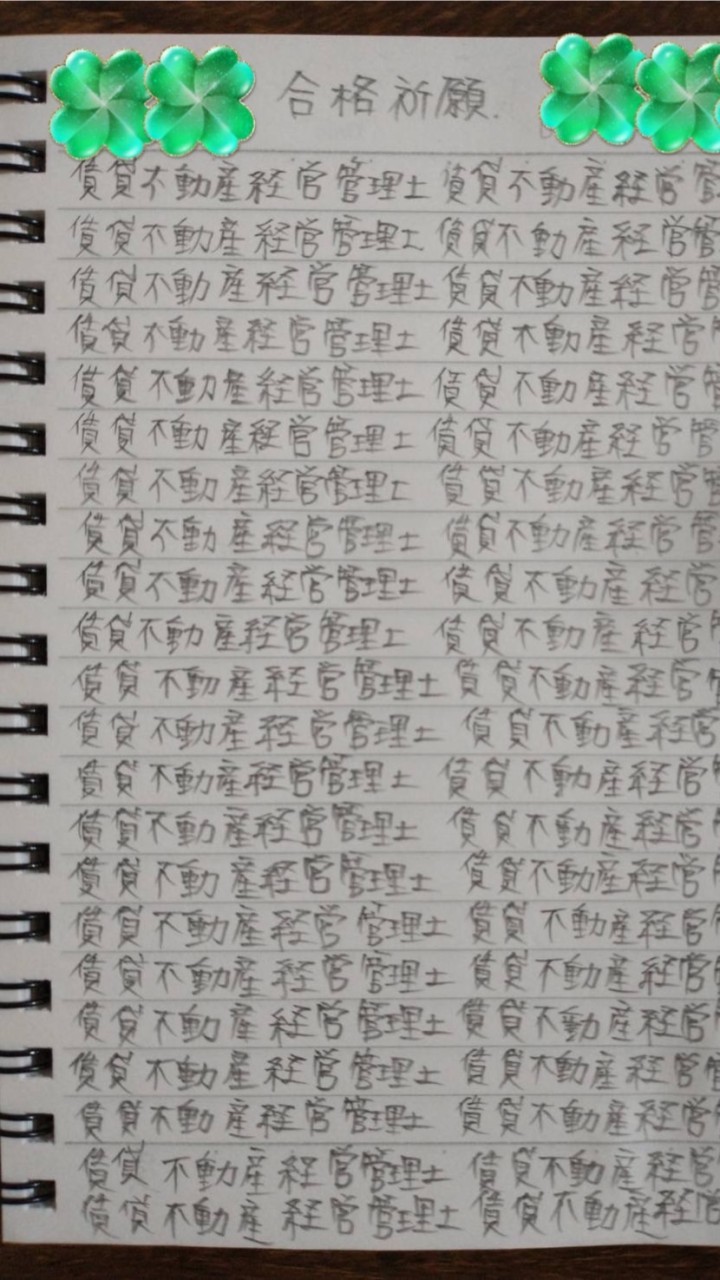 合格祈願.
賃貸不動産経営管理士 賃貸不動産経営管
賃貸不動産経営管理士 賃貸不動産経営管
賃貸不動産経営管理士 賃貸不動産経営管
賃貸不動産経営管理士 賃貸不動産経営
賃貸不動産経営管理士 賃貸不動産経営管
賃貸不動産経営管理士 賃貸不動産経営管
賃貸不動産経営管理士 賃貸不動産経営管
賃貸不動産経営管理士 賃貸不動産経営管
賃貸不動産経営管理士 賃貸不動産経営
賃貸不動産経営管理士 賃貸不動産経営
賃貸不動産経営管理士 賃貸不動産経営
賃貸不動産経営管理士 賃貸不動産経営
賃貸不動産経営管理士 賃貸不動産経営
賃貸不動産経営管理士 賃貸不動産経営
賃貸不動産経営管理士 賃貸不動産経営
賃貸不動産経営管理士 賃貸不動産経営
賃貸不動産経営管理士 賃貸不動産経営
賃貸不動産経営管理士 賃貸不動産経営
賃貸不動産経営管理士 賃貸不動産経営
賃貸不動産経営管理士 賃貸不動産経営
賃貸不動産経営管理士 賃貸不動産経営
賃貸不動産経営管理士 賃貸不動産経営